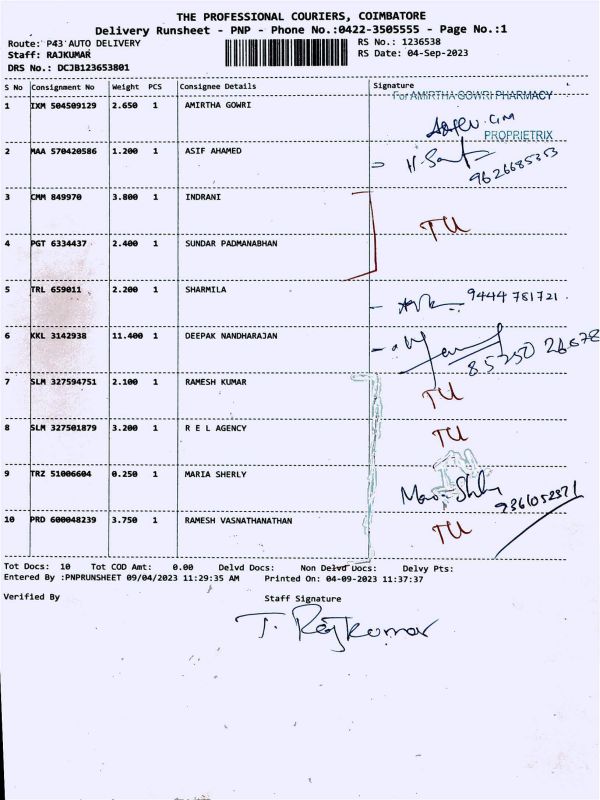 THE PROFESSIONAL COURIERS, COIMBATORE
Delivery Runsheet - PNP - Phone No.:0422-3505555 - Page No.:1
Route: P43 AUTO DELIVERY
RS No.: 1236538
Staff: RAJKUMAR
RS Date: 04-Sep-2023
DRS No.: DCJB123653801
S No Consignment No Weight PCS Consignee Details Signature
For AMIRTHA GOWRI PHARMACY
1 IXM 504509129 2.650 1 AMIRTHA GOWRI
PROPRIETRIX
2 MAA 570420586 1.200 1 ASIF AHAMED
9626685353
3 CMM 849970 3.800 1 INDRANI
TU
4 PGT 6334437 2.400 1 SUNDAR PADMANABHAN
5 TRL 659011 2.200 1 SHARMILA 9444 781721
6 KKL 3142938 11.400 1 DEEPAK NANDHARAJAN
85250 26678
7 SLM 327594751 2.100 1 RAMESH KUMAR TU
8 SLM 327501879 3.200 1 R E L AGENCY TU
9 TRZ 51006604 0.250 1 MARIA SHERLY
10 PRD 600048239 3.750 1 RAMESH VASNATHANATHAN TU
Tot Docs: 10 Tot COD Amt: 0.00 Delvd Docs: Non Delvd Docs: Delvy Pts:
Entered By :PNPRUNSHEET 09/04/2023 11:29:35 AM Printed On: 04-09-2023 11:37:37
Verified By Staff Signature
T. Rajkumar